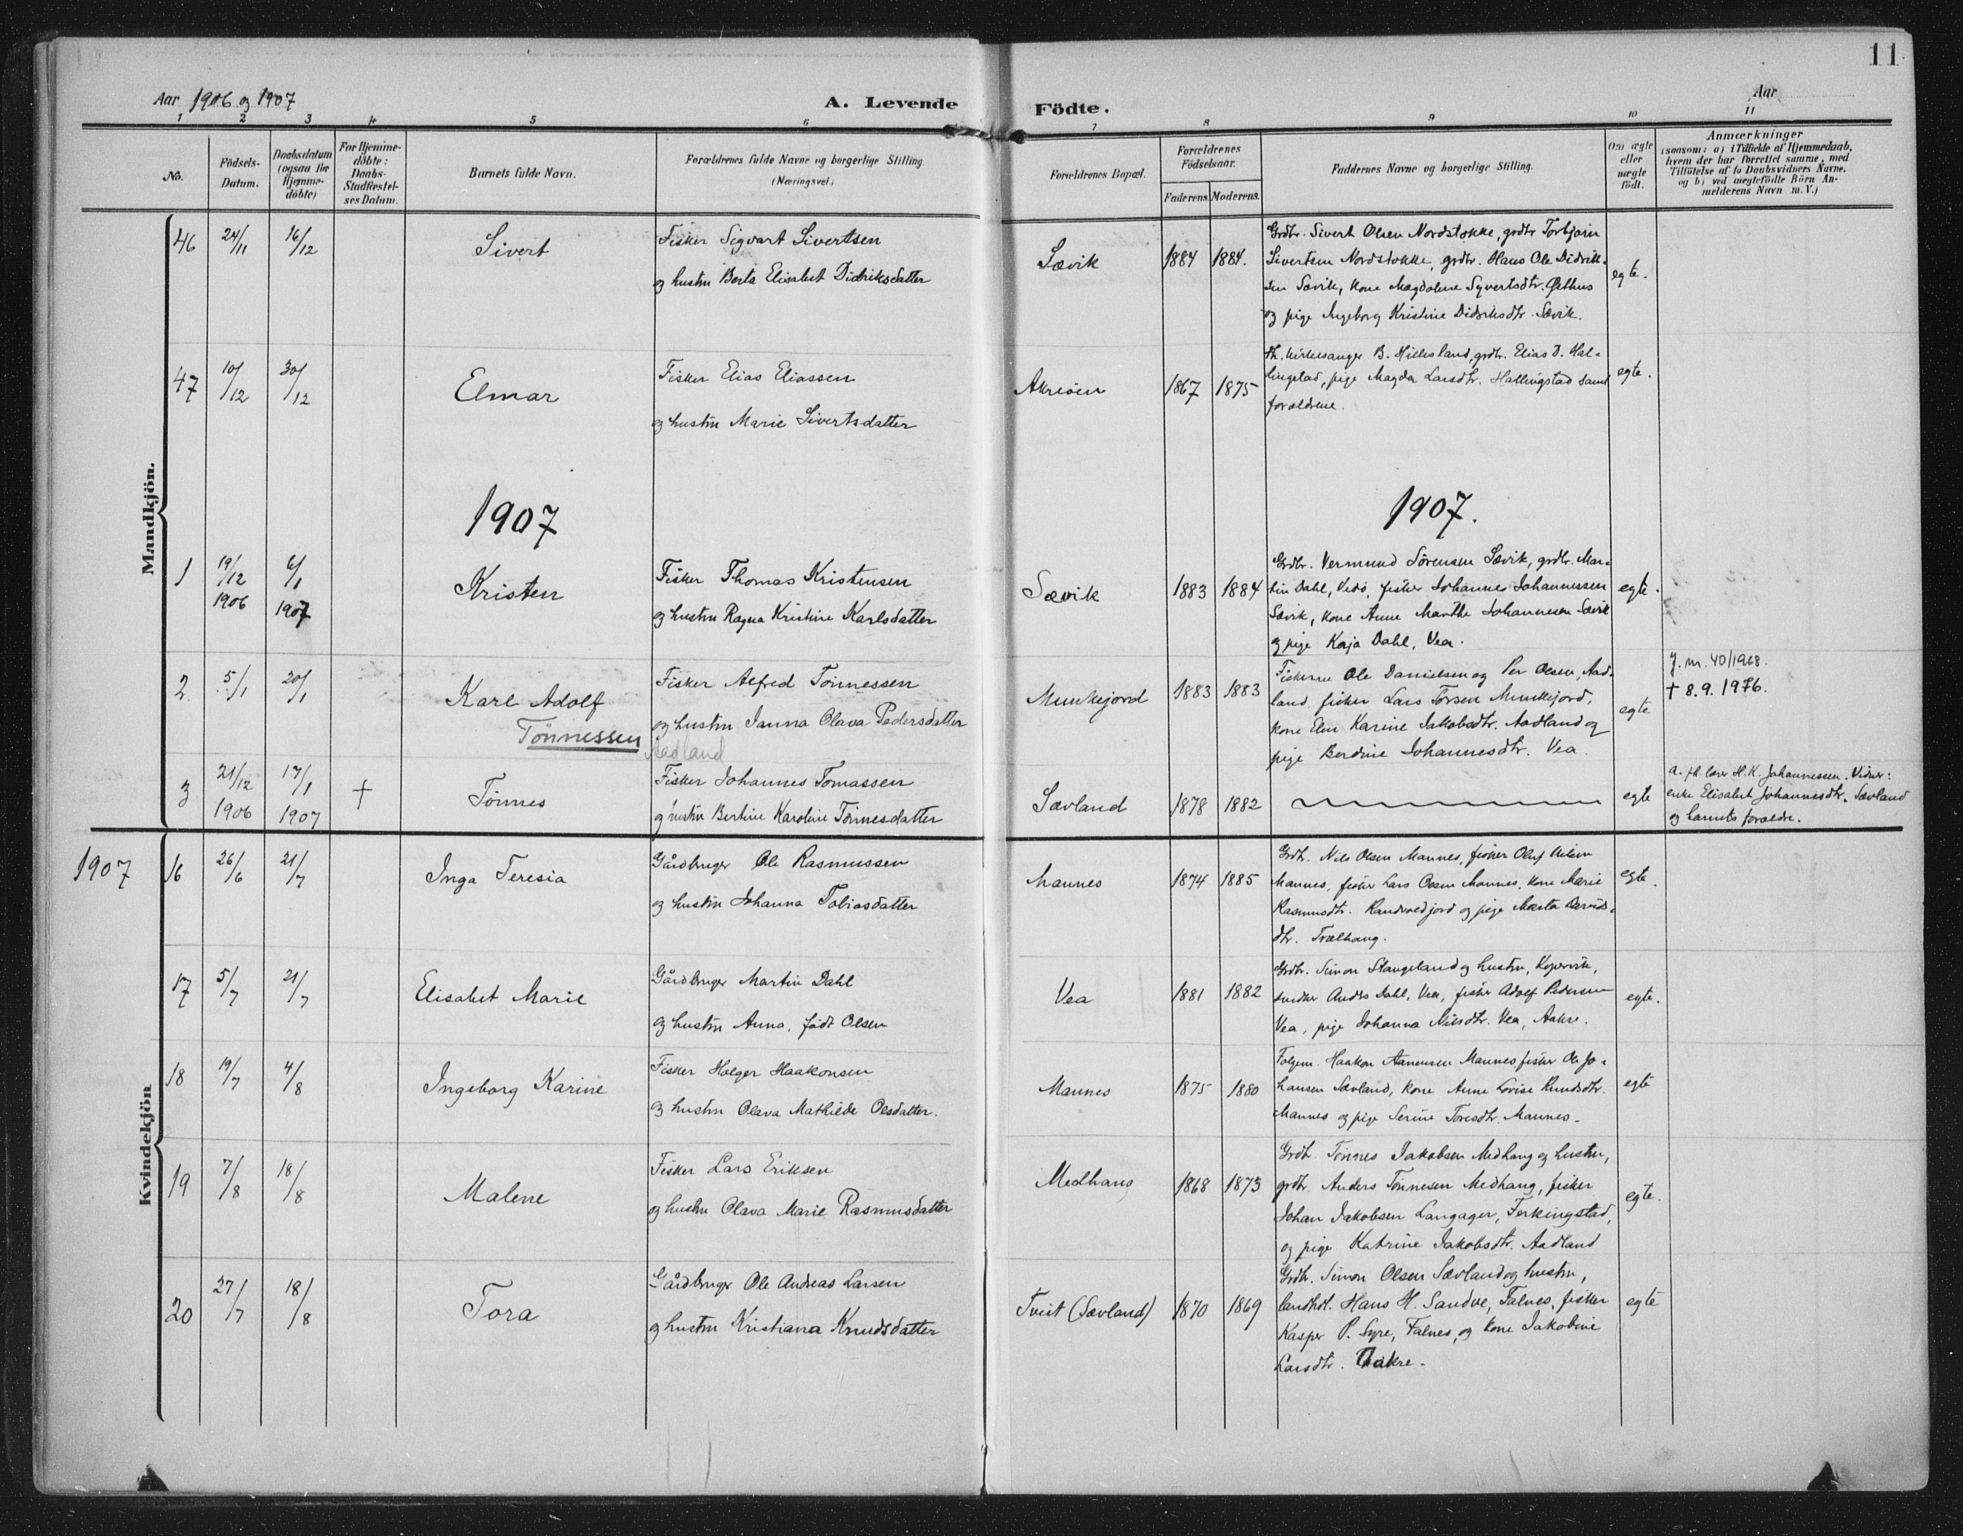 11
Aar 1906 og 1907
A. Levende Födte.
Aar
1 2 3 4 5 6 7 8 9 10 11
No.
Födsels-Datum.
Daabsdatum (ogsaa for Hjemme-döbte)
For Hjemme-döbte: Daabs-Stadfæstel-ses Datum.
Barnets fulde Navn.
Forældrenes fulde Navne og borgerlige Stilling (Næringsvei.)
Forældrenes Bopæl.
Forældrenes Födselsaar.
Faderens. Moderens.
Faddernes Navne og borgerlige Stilling.
Om ægte eller uægte födt.
Anmærkninger
(saasom: a) i Tilfælde af Hjemmedaab, hvem der har forrettet samme, med Tilföielse af to Daabsvidners Navne, og b) ved uægtefödte Börn An-melderens Navn m. V.)
Mandkjön.
46 24/11 16/12 Sivert
Fisker Sigvart Sivertsen
og hustru Berta Elisabet Didriksdatter
Sævik 1884 1884.
Grdbr. Sivert Olsen Nordstokke, grdbr Torbjørn
Sivertsen Nordstokke, grdbr. Hans Ole Didrik-
sen Sævik, kone Magdalene Syvertsdtr. Østhus
og pige Ingeborg Kristine Didriksdtr. Sævik.
egte.
47 10/12 30/12 Elmar
Fisker Elias Eliassen
og hustru Marie Sivertsdatter
Akreøen 1867 1875
fh. kirkesanger B. Hillesland, grdbr. Elias D. Hal-
lingstad, pige Magda Larsdtr. Hallingstad samt
forældrene.
egte.
1907 1907.
1 19/12 1906 6/1 1907 Kristen
Fisker Thomas Kristensen
og hustru Ragna Kristine Karlsdatter
Sævik 1883 1884
Grdbr. Vermund Sørensen Sævik, grdbr. Mar-
tin Dahl, Vedø, fisker Johannes Johannessen
Sævik, kone Anne Marthe Johannesen Sævik
og pige Kaja Dahl, Vea.
egte.
2 5/1 20/1 Karl Adolf
Tönnessen
Fisker Alfred Tönnessen
og hustru Janna Olava Pedersdatter
Aadland
Munkejord 1883 1883
Fiskerne Ole Danielsen og Per Olsen, Aad-
land, fisker Lars Torsen Munkejord,
kone Elen Karine Jakobsdtr. Aadland og
pige Berdine Johannesdtr. Vea.
egte
J. nr. 40/1968.
† 8.9.1976.
3 21/12 1906 17/1 1907 † Tönnes
Fisker Johannes Tomassen
og hustru Bertine Karoline Tönnesdatter
Sævland 1878 1882
egte
a. fh. lærer H. K. Johannessen. Vidner:
enke Elisabet Johannesdtr. Sævland
og barnets forældre.
Kvindekjön
1907 16 26/6 21/7 Inga Teresia
Gårdbruger Ole Rasmussen
og hustru Johanna Tobiasdatter
Mannes 1874 1885
Grdbr. Nils Olsen Mannes, fisker Oluf Nilsen
Mannes, fisker Lars Olsen Mannes, kone Marie
Rasmusdtr. og pige Marta Davids-
dtr. Trælhaug.
egte.
17 5/7 21/7 Elisabet Marie
Gårdbruger Martin Dahl
og hustru Anna, født Olsen
Vea 1881 1882
Grdbr. Simon Stangeland og hustru, Kopervik,
snedker Anders Dahl, Vea, fisker Adolf Pedersen
Vea, pige Johanna Nilsdtr. Vea, Aakre.
egte.
18 19/7 4/8 Ingeborg Karine
Fisker Holger Haakonsen
og hustru Olava Mathilde Olsdatter.
Mannes 1875 1880
Haakon Mannes, fisker Ole Jo-
hansen Sævland, kone Anne Lovise Knudsdtr.
Mannes og pige Serine Toresdtr. Mannes.
egte
19 7/8 18/8 Malene
Fisker Lars Eriksen
og hustru Olava Marie Rasmusdatter
Medhaug 1868 1873
Grdbr. Tönnes Jakobsen Medhaug og hustru,
grdbr. Anders Tönnesen Medhaug, fisker
Johan Jakobsen Langager, Ferkingstad,
og pige Katrine Jakobsdtr. Aadland
egte.
20 27/7 18/8 Tora
Gårdbruger Ole Andreas Larsen
og hustru Kristiana Knudsdatter
Tveit (Sævland) 1870 1869
Grdbr. Simon Olsen Sævland og hustru,
landhdl. Hans H. Sandve, Falnes, fisker
Kasper P. Syre, Falnes, og kone Jakobine
Larsdtr. Aakre.
egte